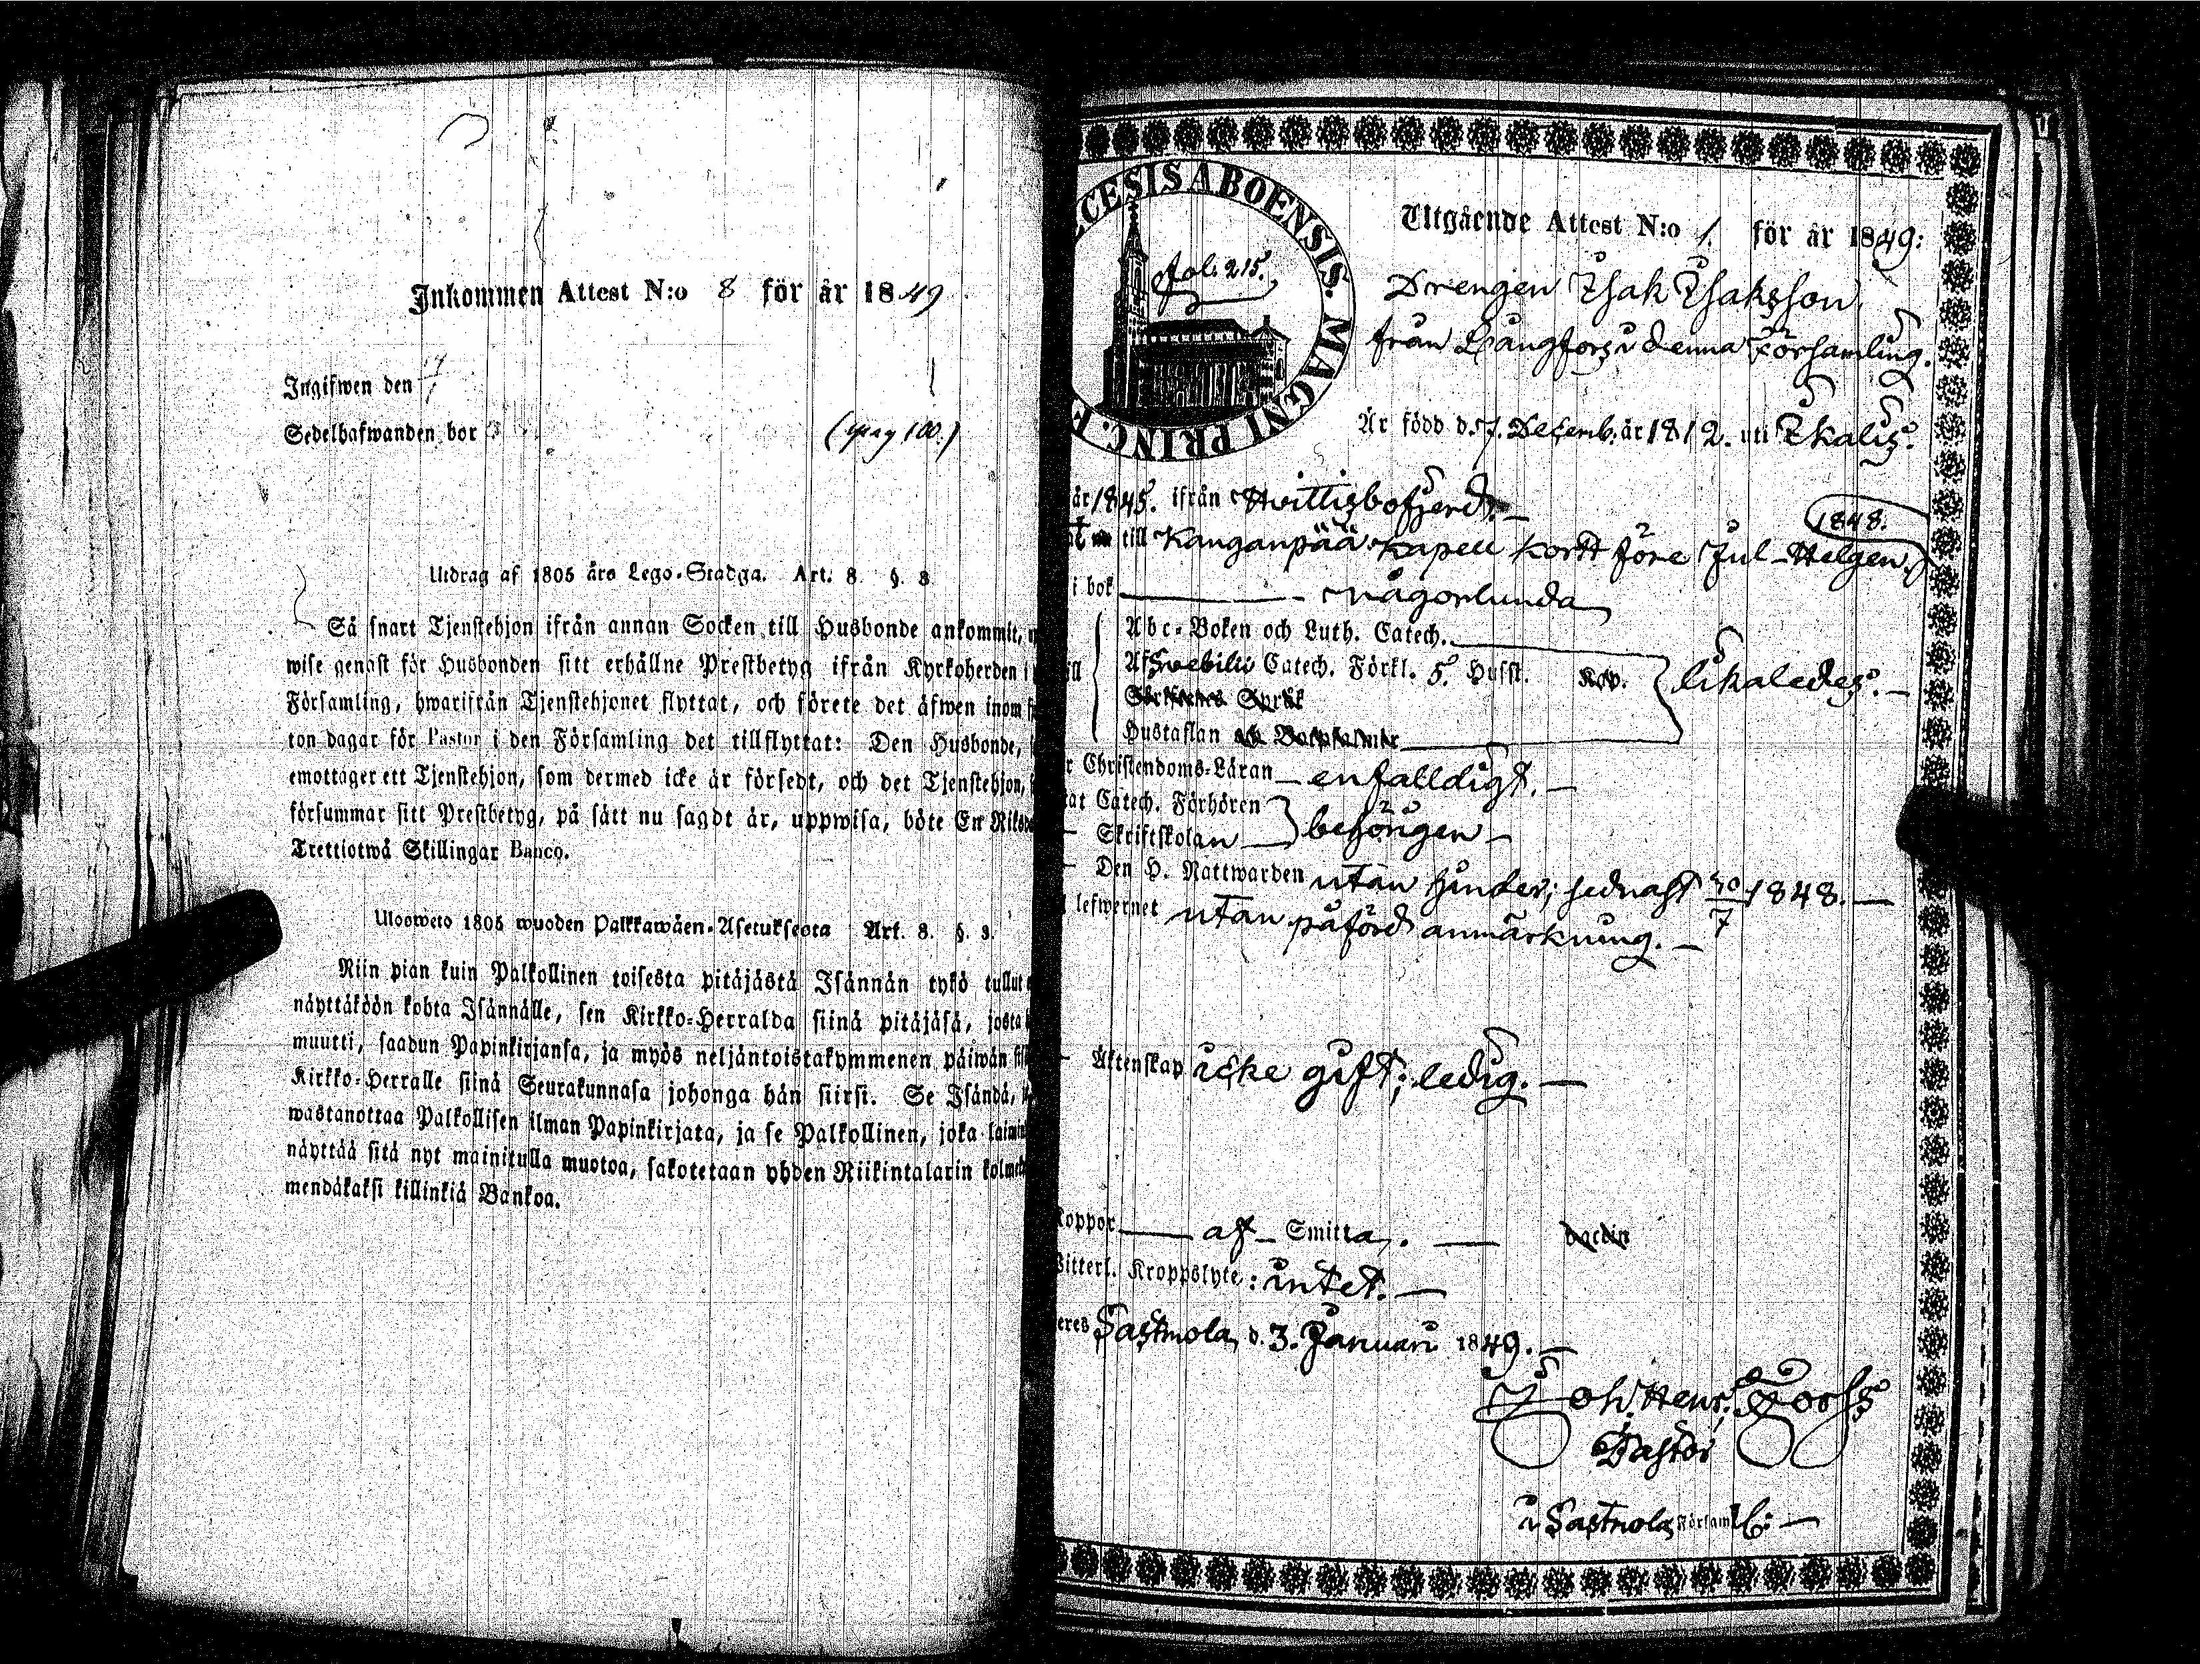 Inkommen Attest N:o 8 för år 1849
Ingifwen den
Sedelhafwanden bor
(pag 100.)
Utdrag af 1805 års Lego-Stadga. Art. 8. §. 3.
Så snart Tjenstehjon ifrån annan Socken till Husbonde ankommit,
wise genast för Husbonden sitt erhållne Prestbetyg ifrån Kyrkoherden i
Församling, hwarifrån Tjenstehjonet flyttat, och förete det äfwen inom
ton dagar för Pastor i den Församling det tillflyttat: Den Husbonde,
emottager ett Tjenstehjon, som dermed icke är försedt, och det Tjenstehjon,
försummar sitt Prestbetyg, på sätt nu sagdt är, uppwisa, böte En Riks
Trettiotwå Skillingar Banco.
Ulosweto 1805 wuoden Palkkawäen-Asetuksesta Art. 8. §. 3.
Niin pian kuin Palkollinen toisesta pitäjästä Isännän tykö tullut
näyttäköön kohta Isännälle, sen Kirkko-Herralda siinä pitäjäsä, josta
muutti, saadun Papinkirjansa, ja myös neljäntoistakymmenen päiwän
Kirkko-Herralle siinä Seurakunnasa johonga hän siirsi. Se Isändä,
wastanottaa Palkollisen ilman Papinkirjata, ja se Palkollinen, joka
näyttää sitä nyt mainitulla muotoa, sakotetaan yhden Riikintalarin
mendäkaksi killinkiä Bankoa.
CESIS ABOENSIS. MAGNI PRINC. F
fol. 215.
Utgående Attest N:o 1. för år 1849:
Drengen Isak Isaksson
från Långfors i denna Församling.
Är född d. 7. Decemb. år 1812. uti Ikalis.
år 1845. ifrån Hvittisbofjerd.
1848.
till Kanganpää Kapell kort före Jul-Helgen
i bok någorlunda
Abc-Boken och Luth. Catech.
Af Svebilii Catech. Förkl. 5. Husst. Kap. likaledes.
Skriftenes Språk
Hustaflan och Botpsalmer
Christendoms-Läran enfalldigt.
Catech. Förhören
Skriftskolan behörigen
Den H. Nattwarden utan hinder; sednast 30/7 1848.
lefwernet utan påförd anmärkning.
Äktenskap icke gift; ledig.
Koppor af Smitta.
Witterl. Kroppslyte: intet.
Sastmola, d. 3. Januari 1849.
Joh. Henr. Forss
Pastor
i Sastmola Församl: